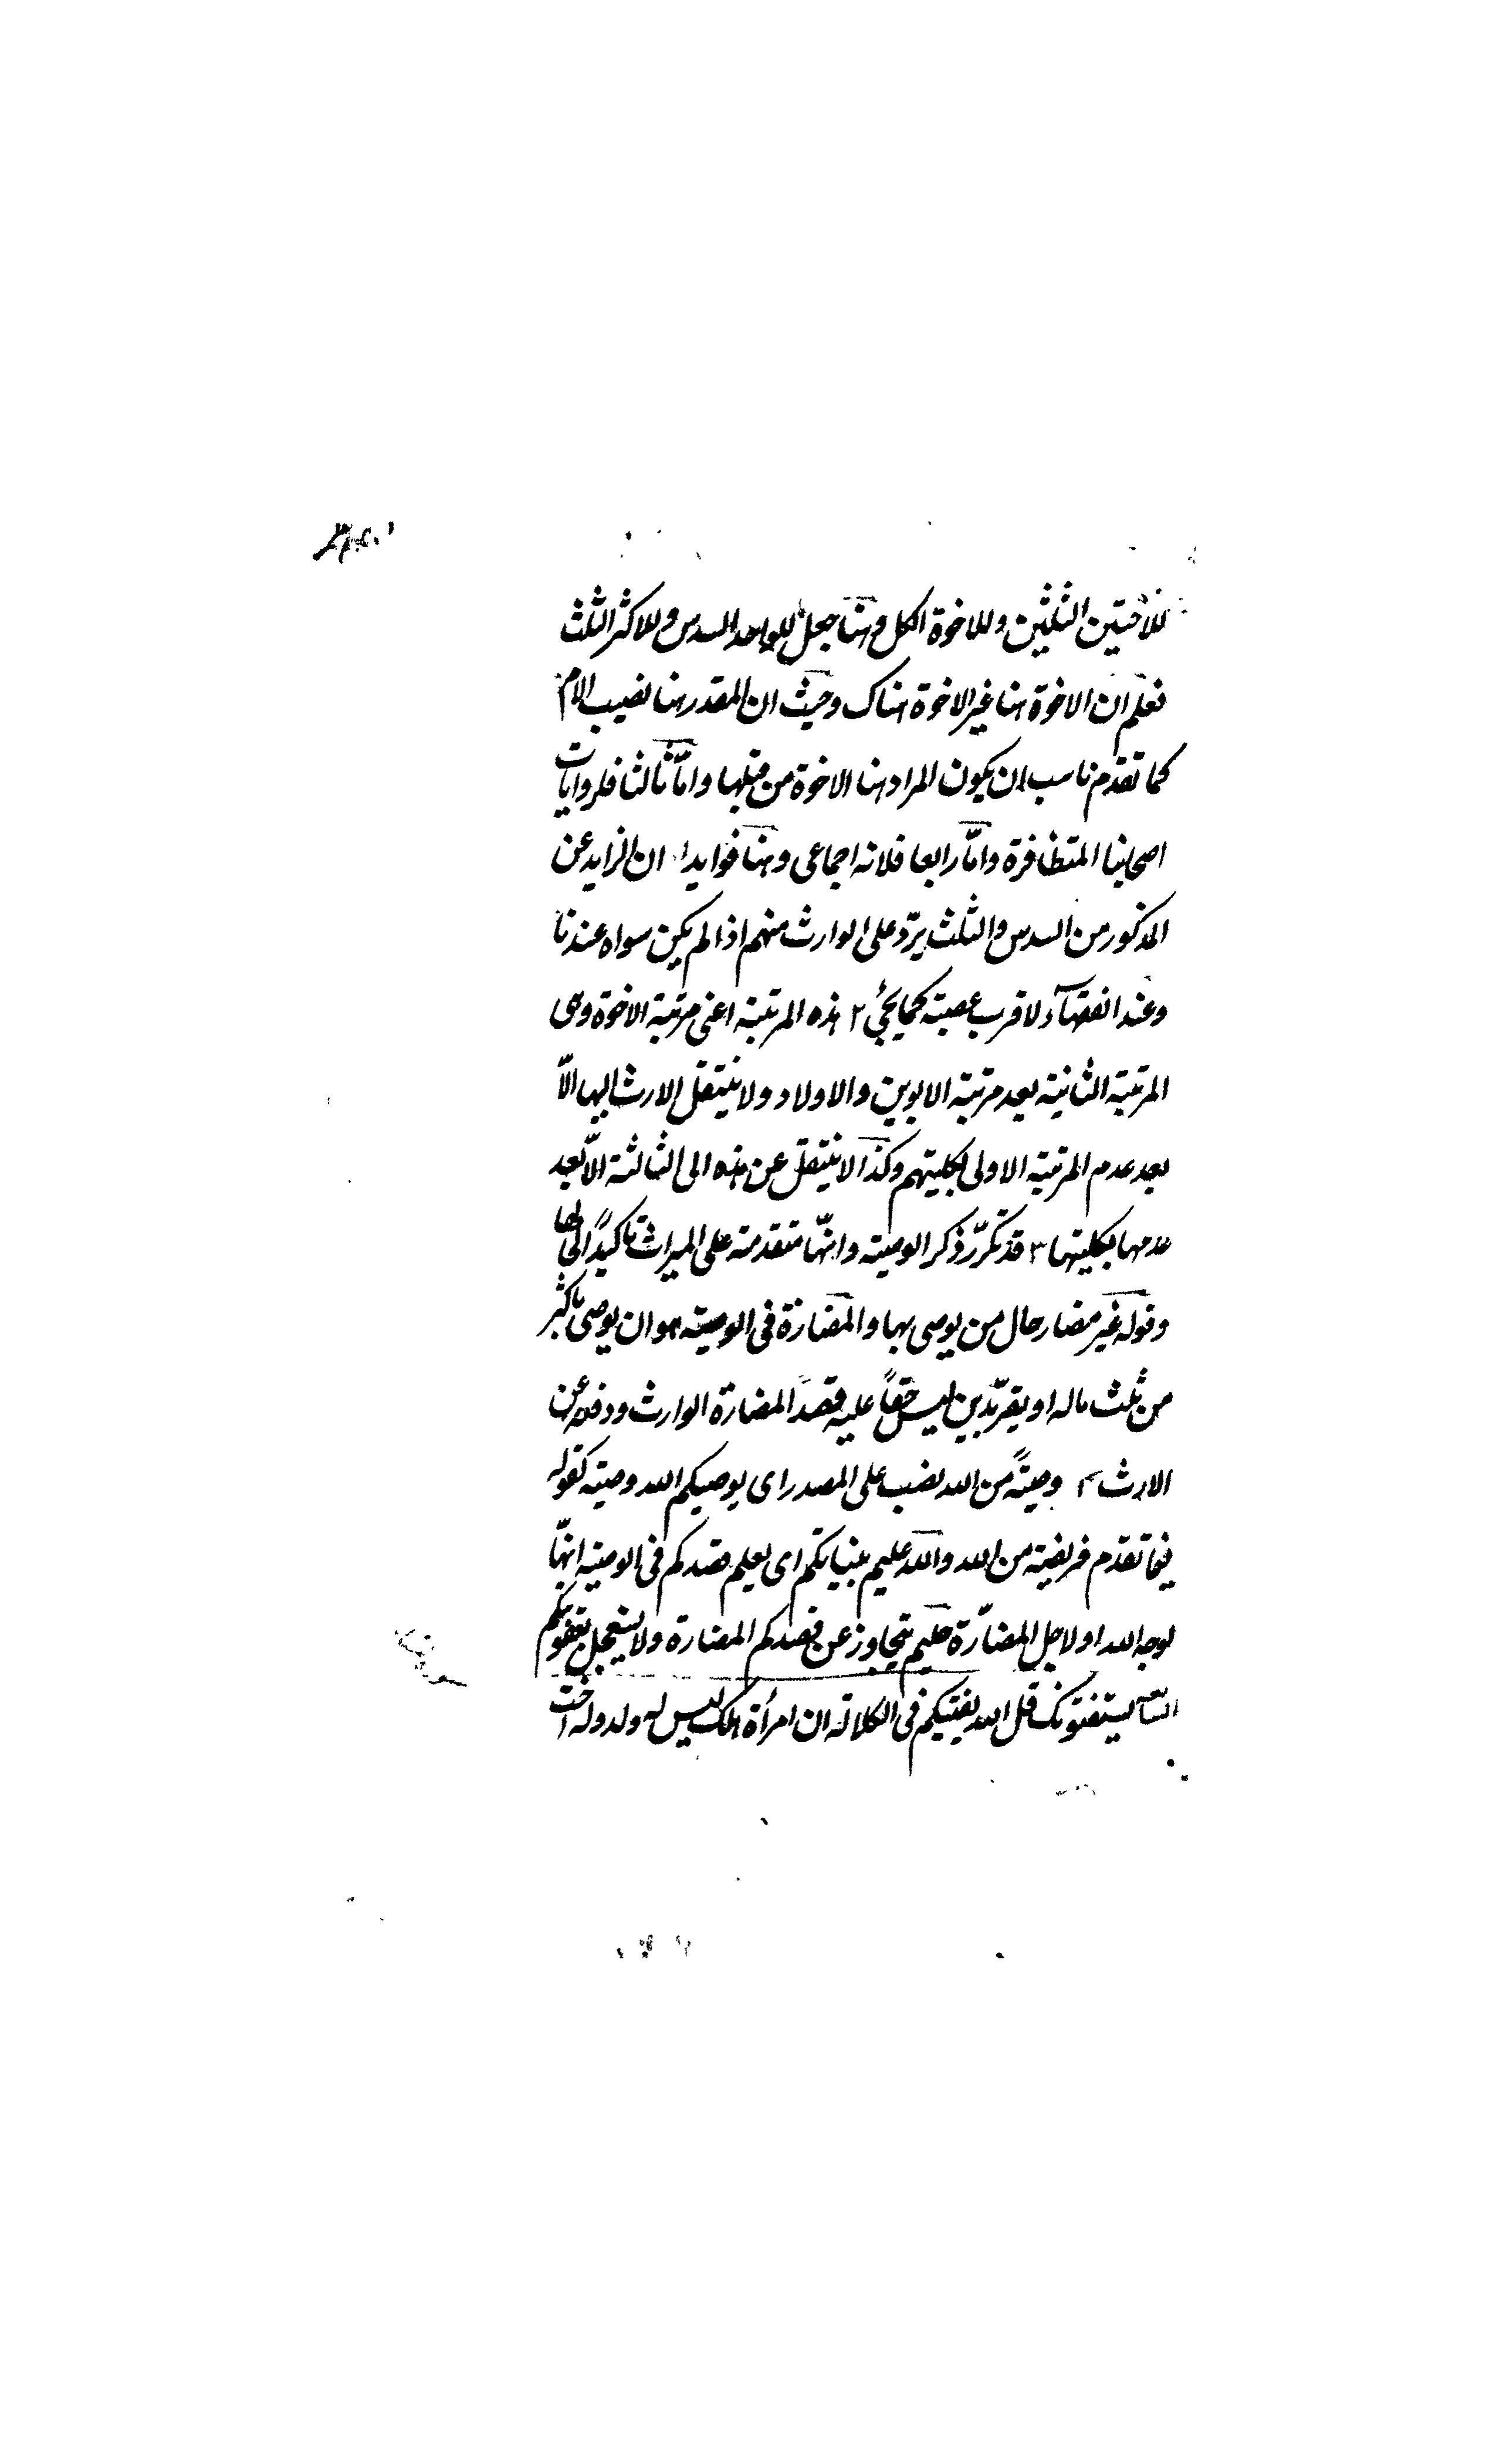 للاختين الثلثين وللاخوة الكل وهنا جعل للواحد السدس وللاكثر الثلث
فعلم ان الاخوة هنا غير الاخوة هناك وحيث ان المقدر هنا نصيب الام
كما تقدم ناسب ان يكون المراد هنا الاخوة من قبلها وامّا ثالثا فلروايات
اصحابنا المتظافرة وامّا رابعا فلانه اجماعى وهنا فوايد ا ان الزايد عن
المذكور من السدس والثلث يردّ على الوارث منهم اذا لم يكن سواه عندنا
وعند الفقهآء لاقرب عصبته كما يجئ ٢ هذه المرتبة اعنى مرتبة الاخوة وهى
المرتبة الثانية بعد مرتبة الابوين والاولاد ولا ينتقل الارث اليها الّا
بعد عدم المرتبة الاولى بكليتهم وكذا لا ينتقل عن هذه الى الثالثة الّا بعد
عدمها بكليتها ٣ قد تكرّر ذكر الوصية وانّها متقدمة على الميراث تاكيداً
وقوله غير مضار حال من يوصى بها والمضارة فى الوصية هو ان يوصى باكثر
من ثلث ماله او يقرّ بدين ليس حقاً عليه قصداً لمضارة الوارث ودفعه عن
الارث ٤ وصيّةً من الله نصب على المصدر اى يوصيكم الله وصية كقوله
فيما تقدم فريضة من الله والله عليم بنياتكم اى يعلم قصدكم فى الوصية انّها
لوجه الله او لاجل المضارّة حليم يتجاوز عن قصدكم المضارة ولا يعجل بعقوبتكم
يستفتونك قل الله يفتيكم فى الكلالة ان امرأة هلك ليس له ولد وله اخت